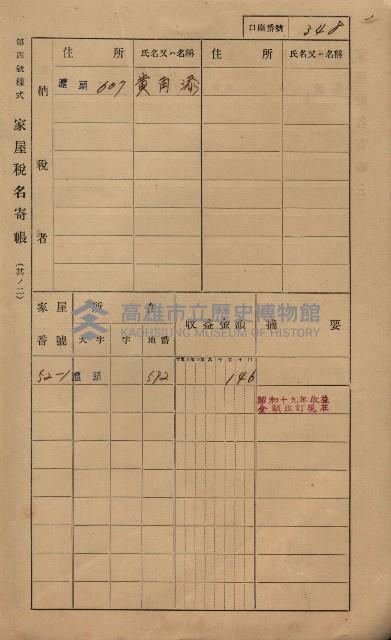 口座番號 348
第四號樣式
家屋稅名寄帳
(其ノ二)
納稅者
住所 氏名又ハ名稱 住所 氏名又ハ名稱
灣頭 607 黄角添
家屋番號 所在 收益金額 摘要
大字 字 地番
52-1 灣頭 592 146
昭和十九年收益
金額改訂現在
高雄市立歷史博物館
KAOHSIUNG MUSEUM OF HISTORY